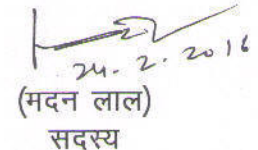 24.2.2016
(मदन लाल)
सदस्य